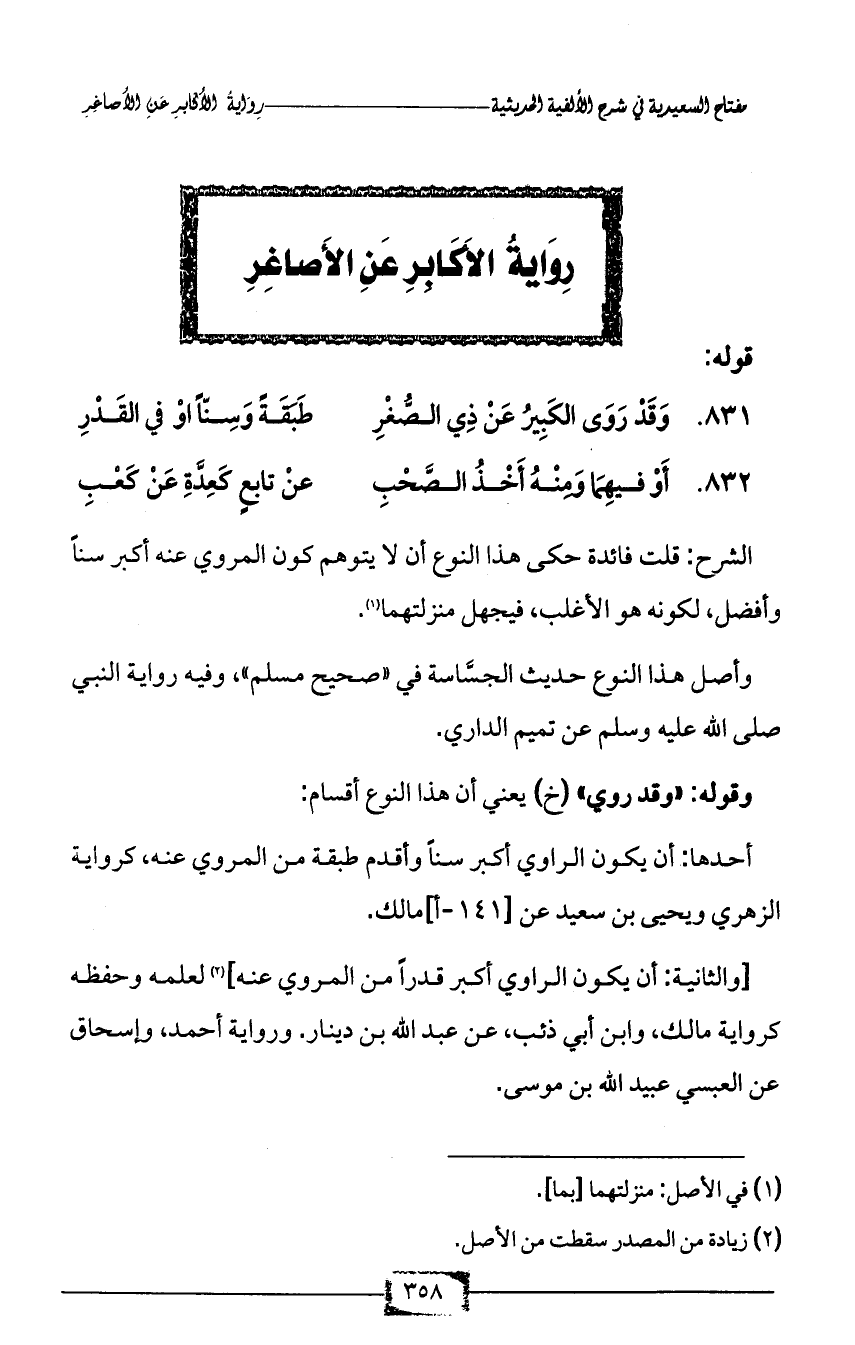 مفتاح السعيدية في شرح الألفية الحديثية — رِوَايَةُ الأَكَابِرِ عَنِ الأَصَاغِرِ
رِوَايةُ الأَكَابِرِ عَنِ الأَصَاغِرِ
قوله:
٨٣١. وَقَدْ رَوَى الكَبِيرُ عَنْ ذِي الـصُّغْرِ طَبَقَـةً وَسِـنّاً اوْ في القَـدْرِ
٨٣٢. أَوْ فـيهِمَا وَمِنْـهُ أَخْـذُ الـصَّحْبِ عنْ تابعٍ كَعِدَّةِ عَنْ كَعْـبِ
الشرح: قلت فائدة حكى هذا النوع أن لا يتوهم كون المروي عنه أكبر سناً
وأفضل، لكونه هو الأغلب، فيجهل منزلتهما(١).
وأصل هذا النوع حديث الجسَّاسة في «صحيح مسلم»، وفيه رواية النبي
صلى الله عليه وسلم عن تميم الداري.
وقوله: «وقد روي» (خ) يعني أن هذا النوع أقسام:
أحدها: أن يكون الراوي أكبر سناً وأقدم طبقة من المروي عنه، كرواية
الزهري ويحيى بن سعيد عن [١٤١-أ]مالك.
[والثانية: أن يكون الراوي أكبر قدراً من المروي عنه](٢) لعلمه وحفظه
كرواية مالك، وابن أبي ذئب، عن عبد الله بن دينار. ورواية أحمد، وإسحاق
عن العبسي عبيد الله بن موسى.
(١) في الأصل: منزلتهما [بما].
(٢) زيادة من المصدر سقطت من الأصل.
٣٥٨